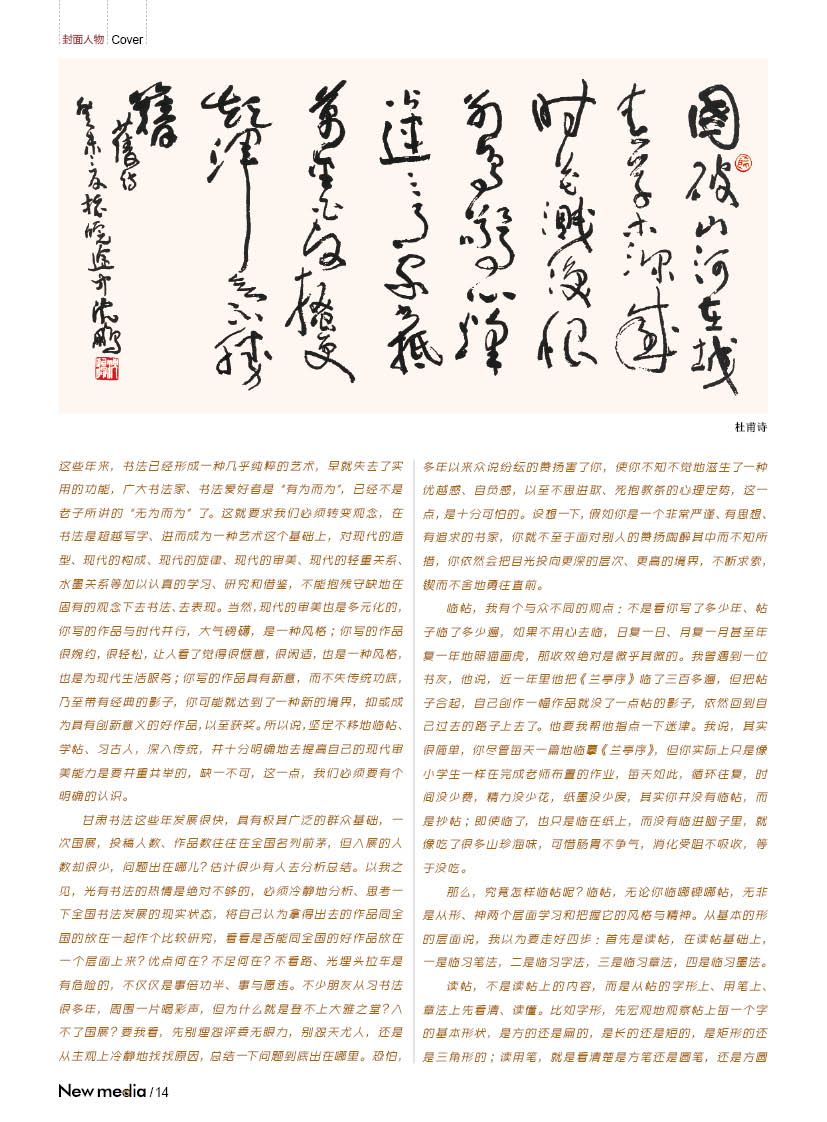 封面人物 Cover
國破山河在城
春草木深感
时花濺淚恨
别鸟驚心烽
火連三月家書抵
萬金白頭搔更
短渾欲不勝
簪
沈鵬
杜甫诗
这些年来，书法已经形成一种几乎纯粹的艺术，早就失去了实
用的功能，广大书法家、书法爱好者是“有为而为”，已经不是
老子所讲的“无为而为”了。这就要求我们必须转变观念，在
书法是超越写字、进而成为一种艺术这个基础上，对现代的造
型、现代的构成、现代的旋律、现代的审美、现代的轻重关系、
水墨关系等加以认真的学习、研究和借鉴，不能抱残守缺地在
固有的观念下去书法、去表现。当然，现代的审美也是多元化的，
你写的作品与时代并行，大气磅礴，是一种风格；你写的作品
很婉约，很轻松，让人看了觉得很惬意，很闲适，也是一种风格，
也是为现代生活服务；你写的作品具有新意，而不失传统功底，
乃至带有经典的影子，你可能就达到了一种新的境界，抑或成
为具有创新意义的好作品，以至获奖。所以说，坚定不移地临帖、
学帖、习古人，深入传统，并十分明确地去提高自己的现代审
美能力是要并重共举的，缺一不可，这一点，我们必须要有个
明确的认识。
甘肃书法这些年发展很快，具有极其广泛的群众基础，一
次国展，投稿人数、作品数往往在全国名列前茅，但入展的人
数却很少，问题出在哪儿？估计很少有人去分析总结。以我之
见，光有书法的热情是绝对不够的，必须冷静地分析、思考一
下全国书法发展的现实状态，将自己认为拿得出去的作品同全
国的放在一起作个比较研究，看看是否能同全国的好作品放在
一个层面上来？优点何在？不足何在？不看路、光埋头拉车是
有危险的，不仅仅是事倍功半、事与愿违。不少朋友从习书法
很多年，周围一片喝彩声，但为什么就是登不上大雅之堂？入
不了国展？要我看，先别埋怨评委无眼力，别怨天尤人，还是
从主观上冷静地找找原因，总结一下问题到底出在哪里。恐怕，
多年以来众说纷纭的赞扬害了你，使你不知不觉地滋生了一种
优越感、自负感，以至不思进取、死抱教条的心理定势，这一
点，是十分可怕的。设想一下，假如你是一个非常严谨、有思想、
有追求的书家，你就不至于面对别人的赞扬陶醉其中而不知所
措，你依然会把目光投向更深的层次、更高的境界，不断求索，
锲而不舍地勇往直前。
临帖，我有个与众不同的观点：不是看你写了多少年、帖
子临了多少遍，如果不用心去临，日复一日、月复一月甚至年
复一年地照猫画虎，那收效绝对是微乎其微的。我曾遇到一位
书友，他说，近一年里他把《兰亭序》临了三百多遍，但把帖
子合起，自己创作一幅作品就没了一点帖的影子，依然回到自
己过去的路子上去了。他要我帮他指点一下迷津。我说，其实
很简单，你尽管每天一篇地临摹《兰亭序》，但你实际上只是像
小学生一样在完成老师布置的作业，每天如此，循环往复，时
间没少费，精力没少花，纸墨没少废，其实你并没有临帖，而
是抄帖；即使临了，也只是临在纸上，而没有临进脑子里，就
像吃了很多山珍海味，可惜肠胃不争气，消化受阻不吸收，等
于没吃。
那么，究竟怎样临帖呢？临帖，无论你临哪碑哪帖，无非
是从形、神两个层面学习和把握它的风格与精神。从基本的形
的层面说，我以为要走好四步：首先是读帖，在读帖基础上，
一是临习笔法，二是临习字法，三是临习章法，四是临习墨法。
读帖，不是读帖上的内容，而是从帖的字形上、用笔上、
章法上先看清、读懂。比如字形，先宏观地观察帖上每一个字
的基本形状，是方的还是扁的，是长的还是短的，是矩形的还
是三角形的；读用笔，就是看清楚是方笔还是圆笔，还是方圆
New media / 14